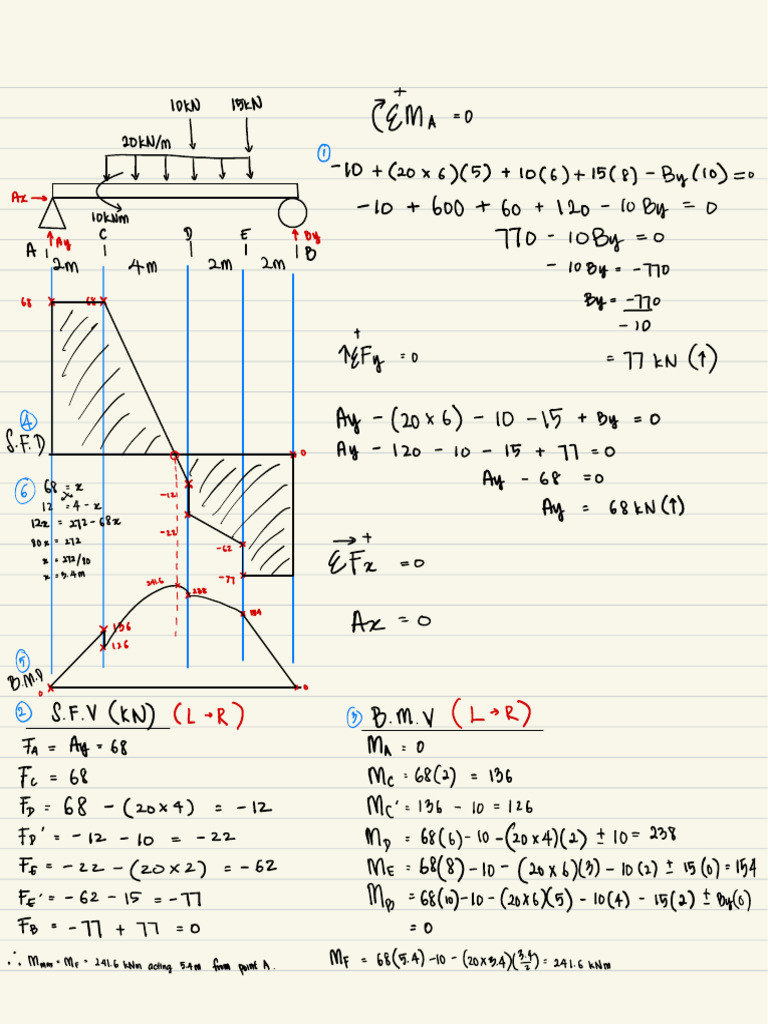 10kN 15kN
20kN/m
Ax →
10kNm
A ↑Ay C D E ↑By B
2m 4m 2m 2m
68 68
④
S.F.D
0
-12
-22
-62
-77
⑥ 68 = x
12 = 4 - x
12x = 272 - 68x
80x = 272
x = 272/80
x = 3.4m
241.6
238
154
136
126
⑤
B.M.D
0 0
ΣMA = 0
①
-10 + (20 × 6)(5) + 10(6) + 15(8) - By(10) = 0
-10 + 600 + 60 + 120 - 10By = 0
770 - 10By = 0
- 10By = -770
By = -770
-10
= 77 kN (↑)
+
↑ΣFy = 0
Ay - (20 × 6) - 10 - 15 + By = 0
Ay - 120 - 10 - 15 + 77 = 0
Ay - 68 = 0
Ay = 68kN(↑)
→ +
ΣFx = 0
Ax = 0
② S.F.V (kN) (L→R)
FA = Ay = 68
FC = 68
FD = 68 - (20×4) = -12
FD' = -12 - 10 = -22
FE = -22 - (20×2) = -62
FE' = -62 - 15 = -77
FB = -77 + 77 = 0
∴ Mmax = MF = 241.6 kNm acting 5.4m from point A.
③ B.M.V (L→R)
MA = 0
MC = 68(2) = 136
MC' = 136 - 10 = 126
MD = 68(6) - 10 - (20×4)(2) ± 10 = 238
ME = 68(8) - 10 - (20×6)(3) - 10(2) ± 15(0) = 154
MB = 68(10) - 10 - (20×6)(5) - 10(4) - 15(2) ± By(0)
= 0
MF = 68(5.4) - 10 - (20×3.4)(3.4/2) = 241.6 kNm